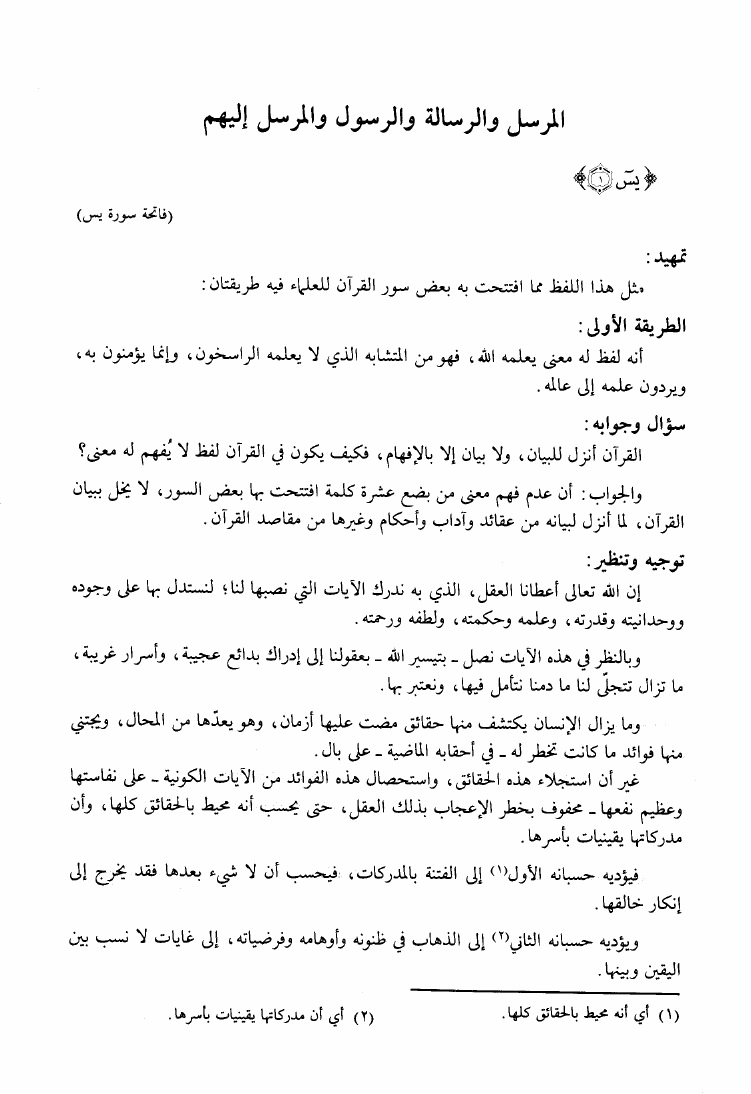 المرسل والرسالة والرسول والمرسل إليهم
﴿يسٓ ١﴾
(فاتحة سورة يس)
تمهيد:
مثل هذا اللفظ مما افتتحت به بعض سور القرآن للعلماء فيه طريقتان:
الطريقة الأولى:
أنه لفظ له معنى يعلمه الله، فهو من المتشابه الذي لا يعلمه الراسخون، وإنما يؤمنون به،
ويردون علمه إلى عالمه.
سؤال وجوابه:
القرآن أنزل للبيان، ولا بيان إلا بالإفهام، فكيف يكون في القرآن لفظ لا يُفهم له معنى؟
والجواب: أن عدم فهم معنى من بضع عشرة كلمة افتتحت بها بعض السور، لا يخل ببيان
القرآن، لما أنزل لبيانه من عقائد وآداب وأحكام وغيرها من مقاصد القرآن.
توجيه وتنظير:
إن الله تعالى أعطانا العقل، الذي به ندرك الآيات التي نصبها لنا؛ لنستدل بها على وجوده
ووحدانيته وقدرته، وعلمه وحكمته، ولطفه ورحمته.
وبالنظر في هذه الآيات نصل ـ بتيسير الله ـ بعقولنا إلى إدراك بدائع عجيبة، وأسرار غريبة،
ما تزال تتجلّى لنا ما دمنا نتأمل فيها، ونعتبر بها.
وما يزال الإنسان يكتشف منها حقائق مضت عليها أزمان، وهو يعدّها من المحال، ويجتني
منها فوائد ما كانت تخطر له ـ في أحقابه الماضية ـ على بال.
غير أن استجلاء هذه الحقائق، واستحصال هذه الفوائد من الآيات الكونية ـ على نفاستها
وعظيم نفعها ـ محفوف بخطر الإعجاب بذلك العقل، حتى يحسب أنه محيط بالحقائق كلها، وأن
مدركاتها يقينيات بأسرها.
فيؤديه حسبانه الأول(١) إلى الفتنة بالمدركات، فيحسب أن لا شيء بعدها فقد يخرج إلى
إنكار خالقها.
ويؤديه حسبانه الثاني(٢) إلى الذهاب في ظنونه وأوهامه وفرضياته، إلى غايات لا نسب بين
اليقين وبينها.
(١) أي أنه محيط بالحقائق كلها.
(٢) أي أن مدركاتها يقينيات بأسرها.